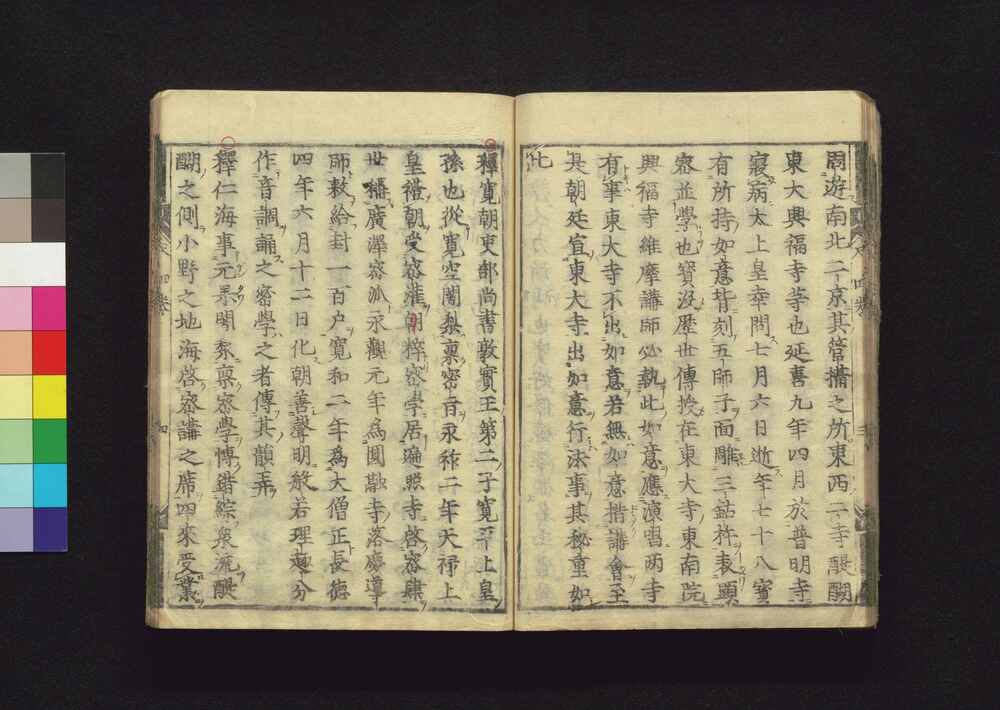 周遊南北二京其管攝之所東西二寺醍醐
東大興福寺等也延喜九年四月於普明寺
寢病太上皇幸問七月六日逝年七十八寶
有所持如意背刻五師子面雕三鈷杵表顯
密並學也寶沒歷世傳授在東大寺東南院
興福寺維摩講師必執此如意應演唱兩寺
有事東大寺不出如意若無如意揩講會至
其朝廷宣東大寺出如意行法事其秘重如
此
釋寬朝吏部尚書敦實王第二子寬平上皇
孫也從寬空闍梨稟密旨永祚二年天禅上
皇禮朝受密灌朝粹密學居遍照寺啓密肆
世稱廣澤密派永觀元年爲圓融寺落慶導
師敕給封一百户寬和二年爲大僧正長德
四年六月十二日化朝善聲明般若理趣分
作音調誦之密學之者傳其韻弄
釋仁海事元杲闍梨稟密學博錯綜衆流醍
醐之側小野之地海啓密講之席四來受業
四